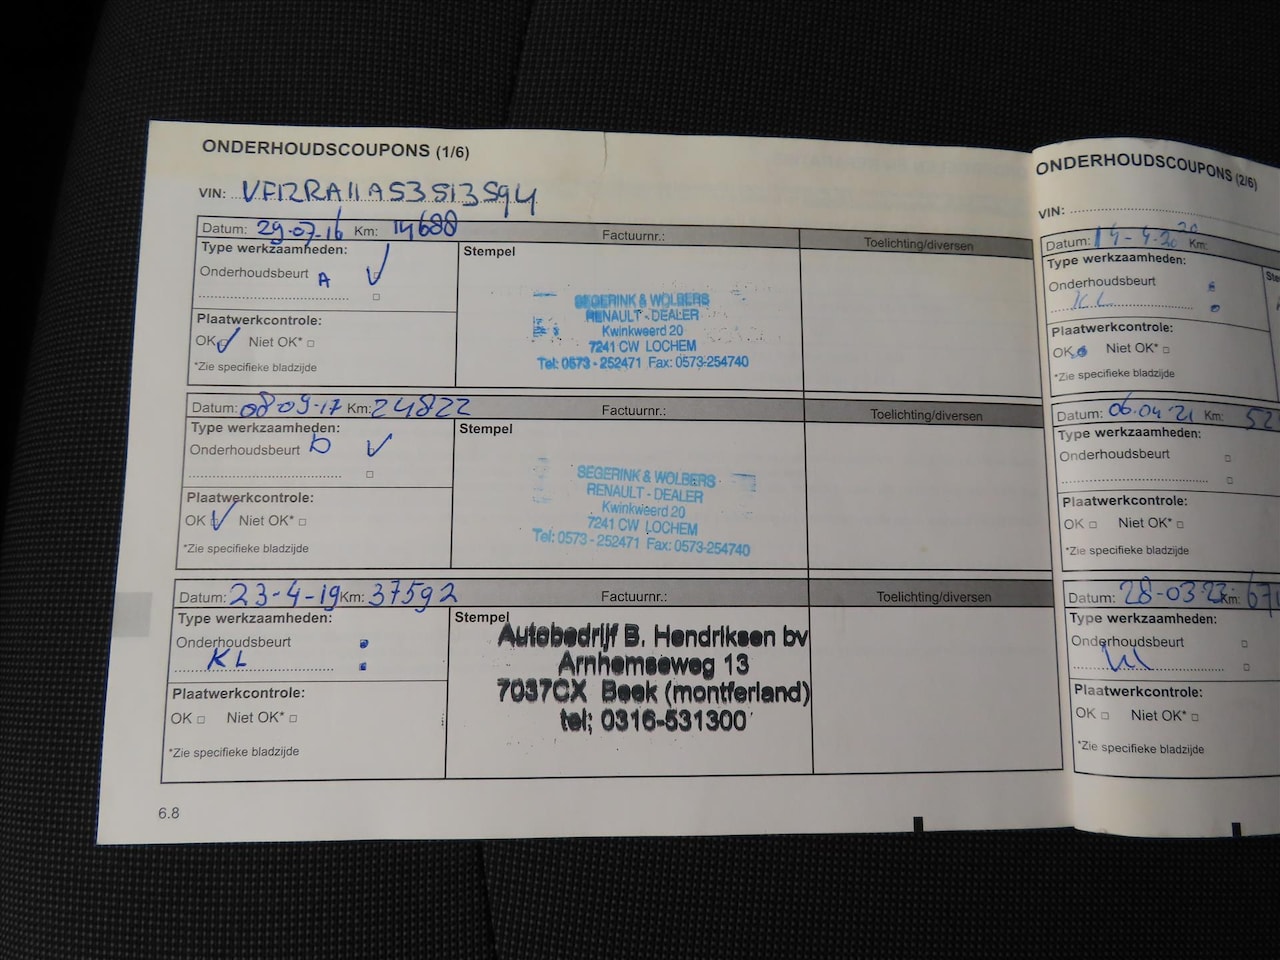 ONDERHOUDSCOUPONS (1/6)
VIN: VF12RA11A53513594
Datum: 29-07-16 Km: 14688 Factuurnr.: Toelichting/diversen
Type werkzaamheden: Stempel
Onderhoudsbeurt A
Plaatwerkcontrole:
OK Niet OK*
*Zie specifieke bladzijde
SEGERINK & WOLBERS
RENAULT - DEALER
Kwinkweerd 20
7241 CW LOCHEM
Tel: 0573 - 252471 Fax: 0573-254740
Datum: 08-09-17 Km: 24822 Factuurnr.: Toelichting/diversen
Type werkzaamheden: Stempel
Onderhoudsbeurt b
Plaatwerkcontrole:
OK Niet OK*
*Zie specifieke bladzijde
SEGERINK & WOLBERS
RENAULT - DEALER
Kwinkweerd 20
7241 CW LOCHEM
Tel: 0573 - 252471 Fax: 0573-254740
Datum: 23-4-19 Km: 37592 Factuurnr.: Toelichting/diversen
Type werkzaamheden: Stempel
Onderhoudsbeurt
KL
Plaatwerkcontrole:
OK Niet OK*
*Zie specifieke bladzijde
Autobedrijf B. Hendriksen bv
Arnhemseweg 13
7037CX Beek (montferland)
tel; 0316-531300
6.8
ONDERHOUDSCOUPONS (2/6)
VIN:
Datum: 14-4-2020 Km:
Type werkzaamheden:
Onderhoudsbeurt
KL
Plaatwerkcontrole:
OK Niet OK*
*Zie specifieke bladzijde
Datum: 06.04.21 Km:
Type werkzaamheden:
Onderhoudsbeurt
Plaatwerkcontrole:
OK Niet OK*
*Zie specifieke bladzijde
Datum: 28-03-22 Km:
Type werkzaamheden:
Onderhoudsbeurt
Plaatwerkcontrole:
OK Niet OK*
*Zie specifieke bladzijde